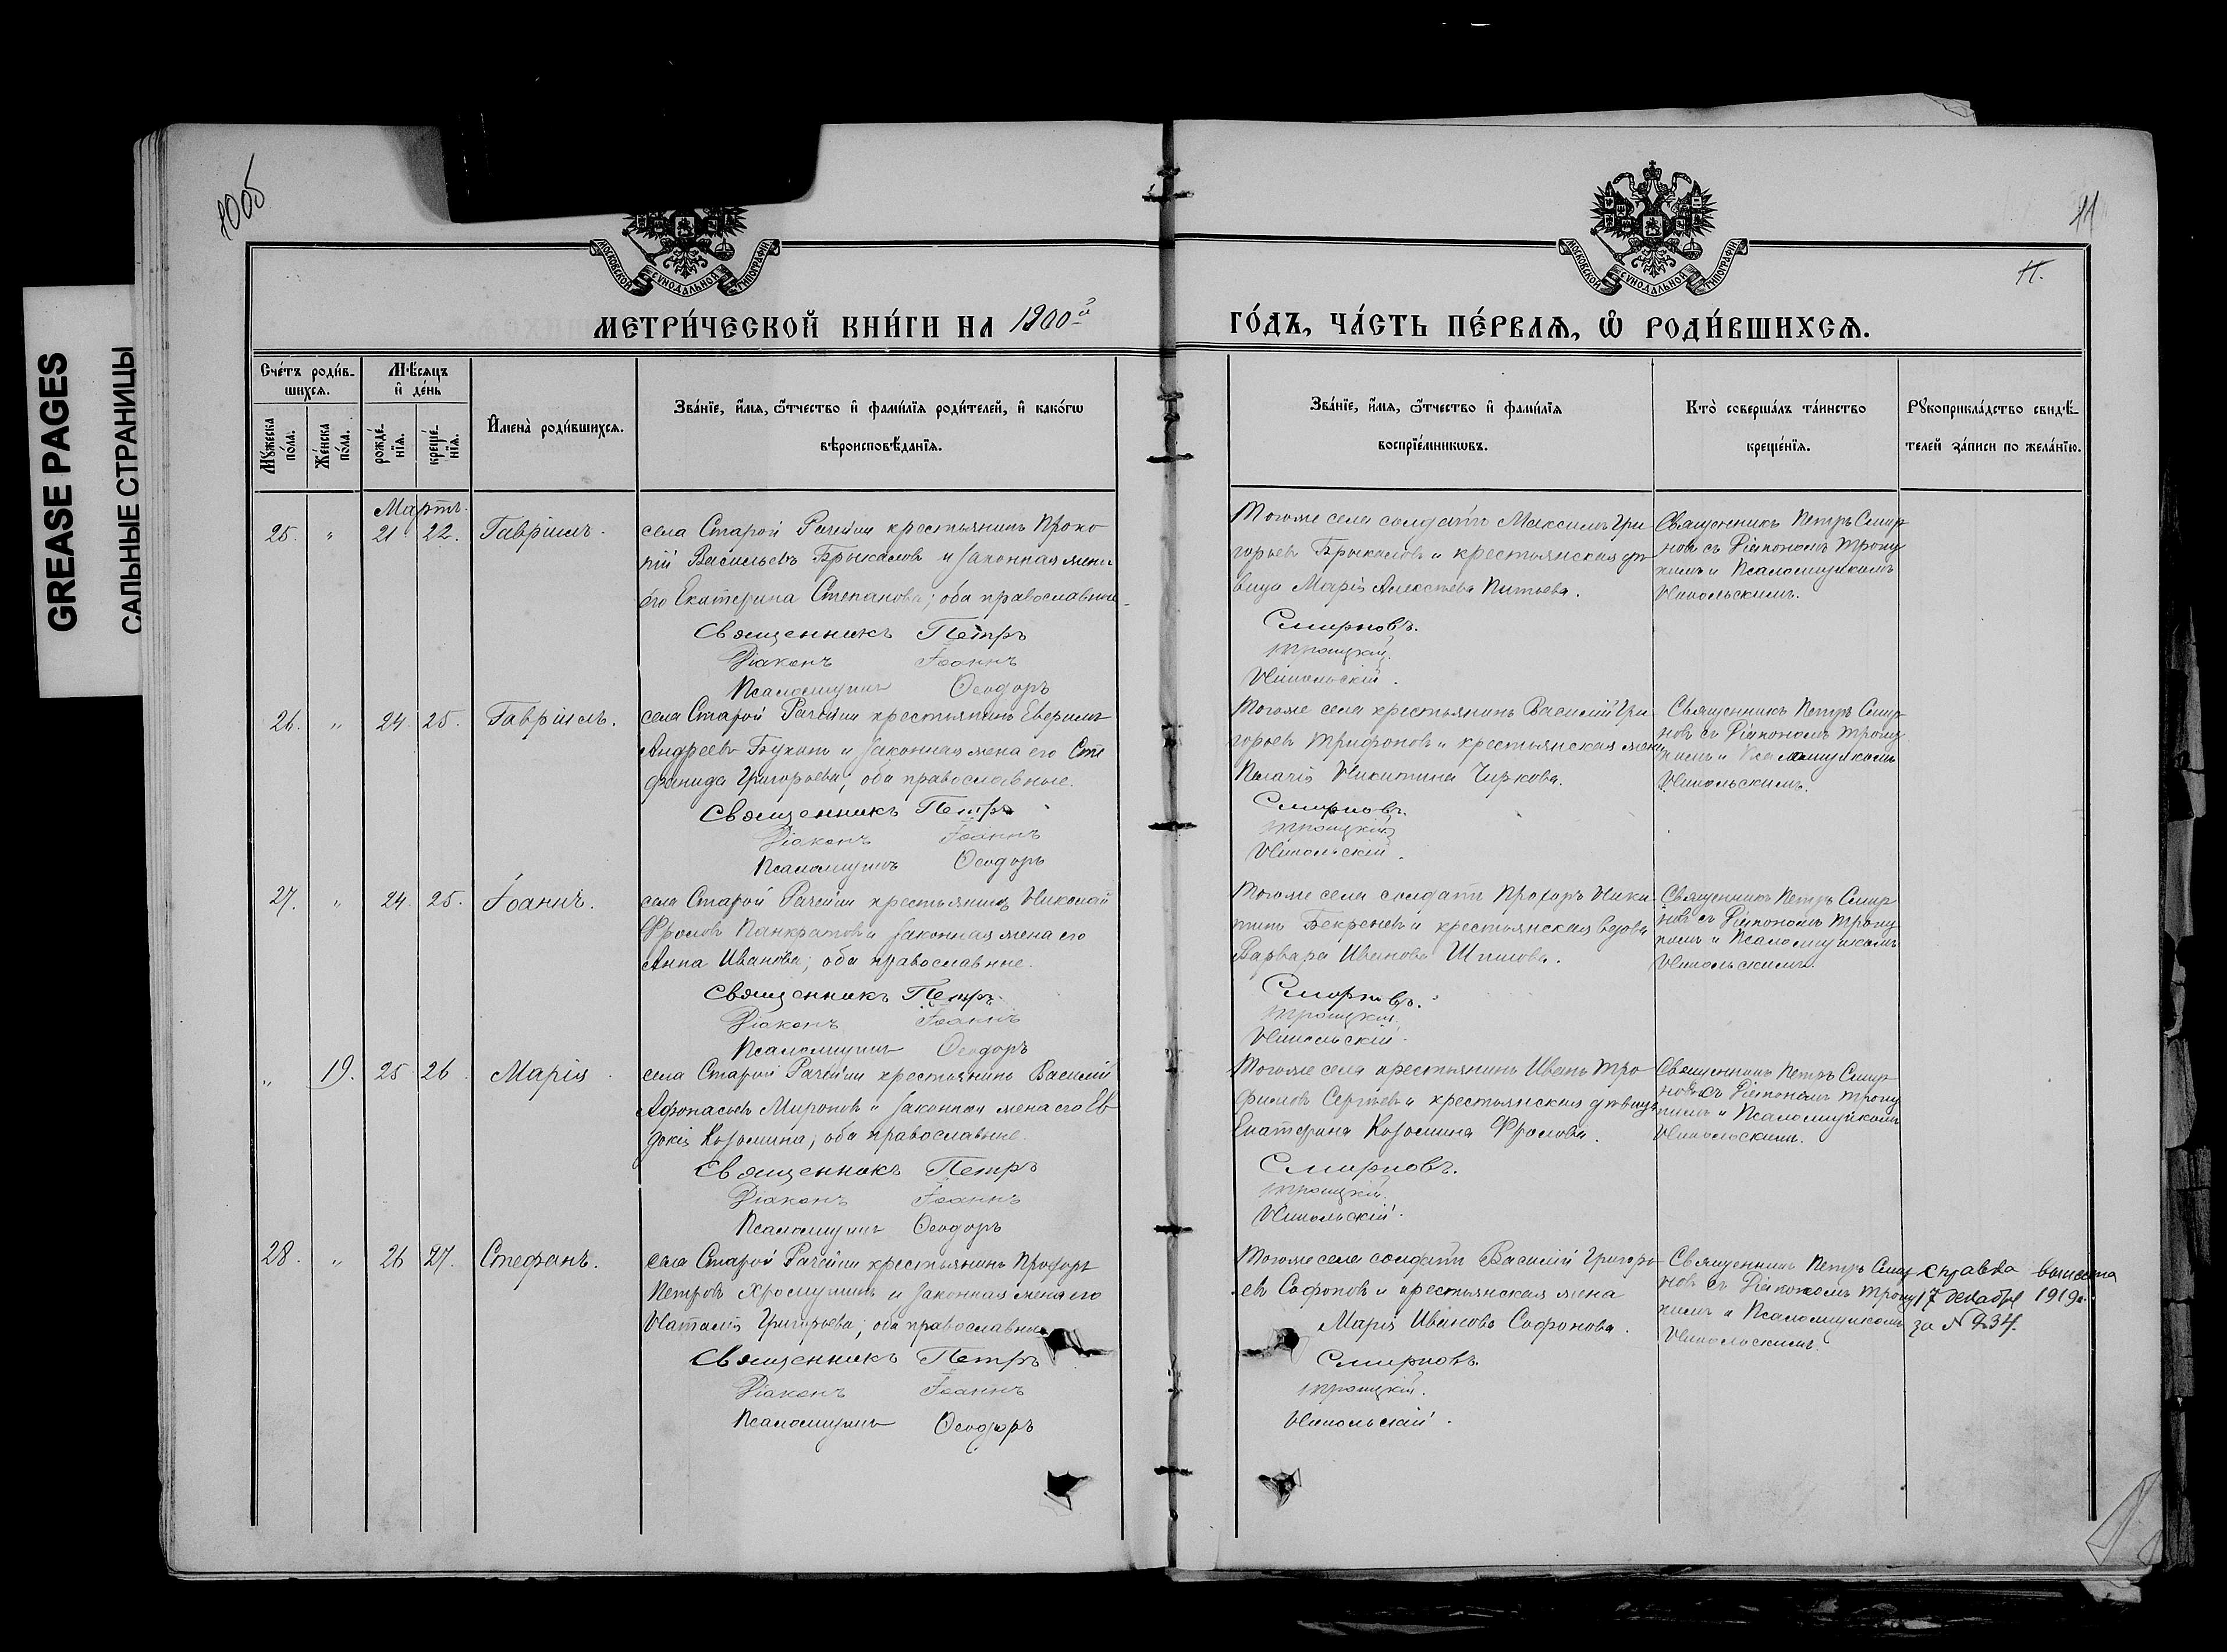 GREASE PAGES
САЛЬНЫЕ СТРАНИЦЫ
10об
11
11.
МОСКОВСКОЙ СѴНОДАЛЬНОЙ ТИПОГРАФІИ
МОСКОВСКОЙ СѴНОДАЛЬНОЙ ТИПОГРАФІИ
МЕТРИ́ЧЕСКОЙ КНИ́ГИ НА 1900й
ГО́ДЪ, ЧА́СТЬ ПЕ́РВАѦ, Ѽ РОДИ́ВШИХСѦ.
Сче́тъ роди́в-
шихсѧ.
Мꙋ́жеска по́ла.
Же́нска по́ла.
Мѣ́сѧцъ
и҆ де́нь
рожде́-
нїѧ.
креще́-
нїѧ.
И҆мена̀ роди́вшихсѧ.
Зва́нїе, и҆́мѧ, ѻ҆́тчество и҆ фами́лїѧ роди́телей, и҆ како́гѡ
вѣроисповѣ́данїѧ.
Зва́нїе, и҆́мѧ, ѻ҆́тчество и҆ фами́лїѧ
воспрїе́мникѡвъ.
Кто̀ соверша́лъ та́инство
креще́нїѧ.
Рꙋкоприкла́дство свидѣ́-
телей за́писи по жела́нїю.
Мартъ.
25. " 21 22. Гавріилъ.
села Старой Рачейки крестьянинъ Проко
пій Васильевъ Брыкаловъ и законная жена
его Екатерина Степанова; оба православные
Священникъ Петръ
Діаконъ Іоаннъ
Псаломщикъ Ѳеодоръ
Тогоже села солдатъ Максимъ Гри
горьевъ Брыкаловъ и крестьянская дѣ
вица Марія Алексѣева Питьева.
Смирновъ.
Троицкій.
Никольскій.
Священникъ Петръ Смир
новъ съ Діакономъ Троиц
кимъ и Псаломщикомъ
Никольскимъ.
26. " 24. 25. Гавріилъ.
села Старой Рачейки крестьянинъ
Андреевъ и законная жена его Сте
фанида Григорьева; оба православные.
Священникъ Петръ
Діаконъ Іоаннъ
Псаломщикъ Ѳеодоръ
Тогоже села крестьянинъ Василій Гри
горьевъ Трифоновъ и крестьянская жена
Никитина Чиркова.
Смирновъ.
Троицкій
Никольскій.
Священникъ Петръ Смир
новъ съ Діакономъ Троиц
кимъ и Псаломщикомъ
Никольскимъ.
27. " 24. 25. Іоаннъ.
села Старой Рачейки крестьянинъ Николай
Фроловъ Панкратовъ и законная жена его
Анна Иванова; оба православные.
Священникъ Петръ
Діаконъ Іоаннъ
Псаломщикъ Ѳеодоръ
Тогоже села солдатъ Прохоръ Ники
тинъ Бекреневъ и крестьянская вдова
Варвара Иванова
Смирновъ.
Троицкій.
Никольскій.
Священникъ Петръ Смир
новъ съ Діакономъ Троиц
кимъ и Псаломщикомъ
Никольскимъ.
" 19. 25 26. Марія.
села Старой Рачейки крестьянинъ Василій
Афонасьевъ Мироновъ и законная жена его Ев
докія Козьмина; оба православные.
Священникъ Петръ
Діаконъ Іоаннъ
Псаломщикъ Ѳеодоръ
Тогоже села крестьянинъ Иванъ Тро
фимовъ Сергѣевъ и крестьянская дѣвица
Екатерина Козьмина Фролова.
Смирновъ.
Троицкій.
Никольскій.
Священникъ Петръ Смир
новъ съ Діакономъ Троиц
кимъ и Псаломщикомъ
Никольскимъ.
28. " 26 27. Стефанъ.
села Старой Рачейки крестьянинъ Прохоръ
Петровъ и законная жена его
Наталія Григорьева; оба православные
Священникъ Петръ
Діаконъ Іоаннъ
Псаломщикъ Ѳеодоръ
Тогоже села солдатъ Василій Григорь
евъ Софоновъ и крестьянская жена
Марія Иванова Софонова.
Смирновъ.
Троицкій.
Никольскій.
Священникъ Петръ Смир
новъ съ Діакономъ Троиц
кимъ и Псаломщикомъ
Никольскимъ.
справка
17 декабря 1919г.
за №